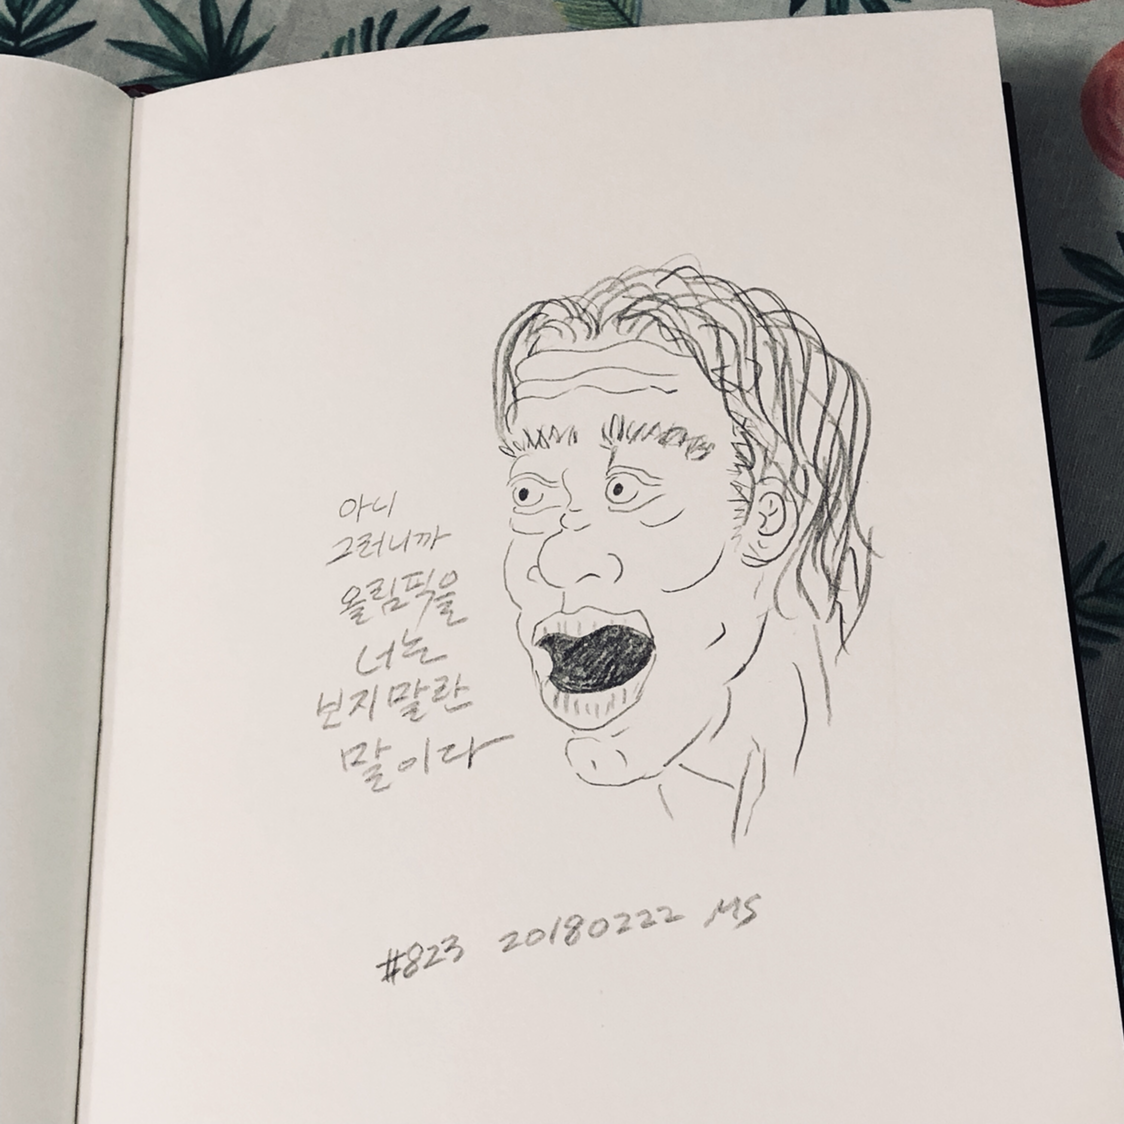 아니
그러니까
올림픽을
너는
보지말란
말이다
#823 20180222 MS